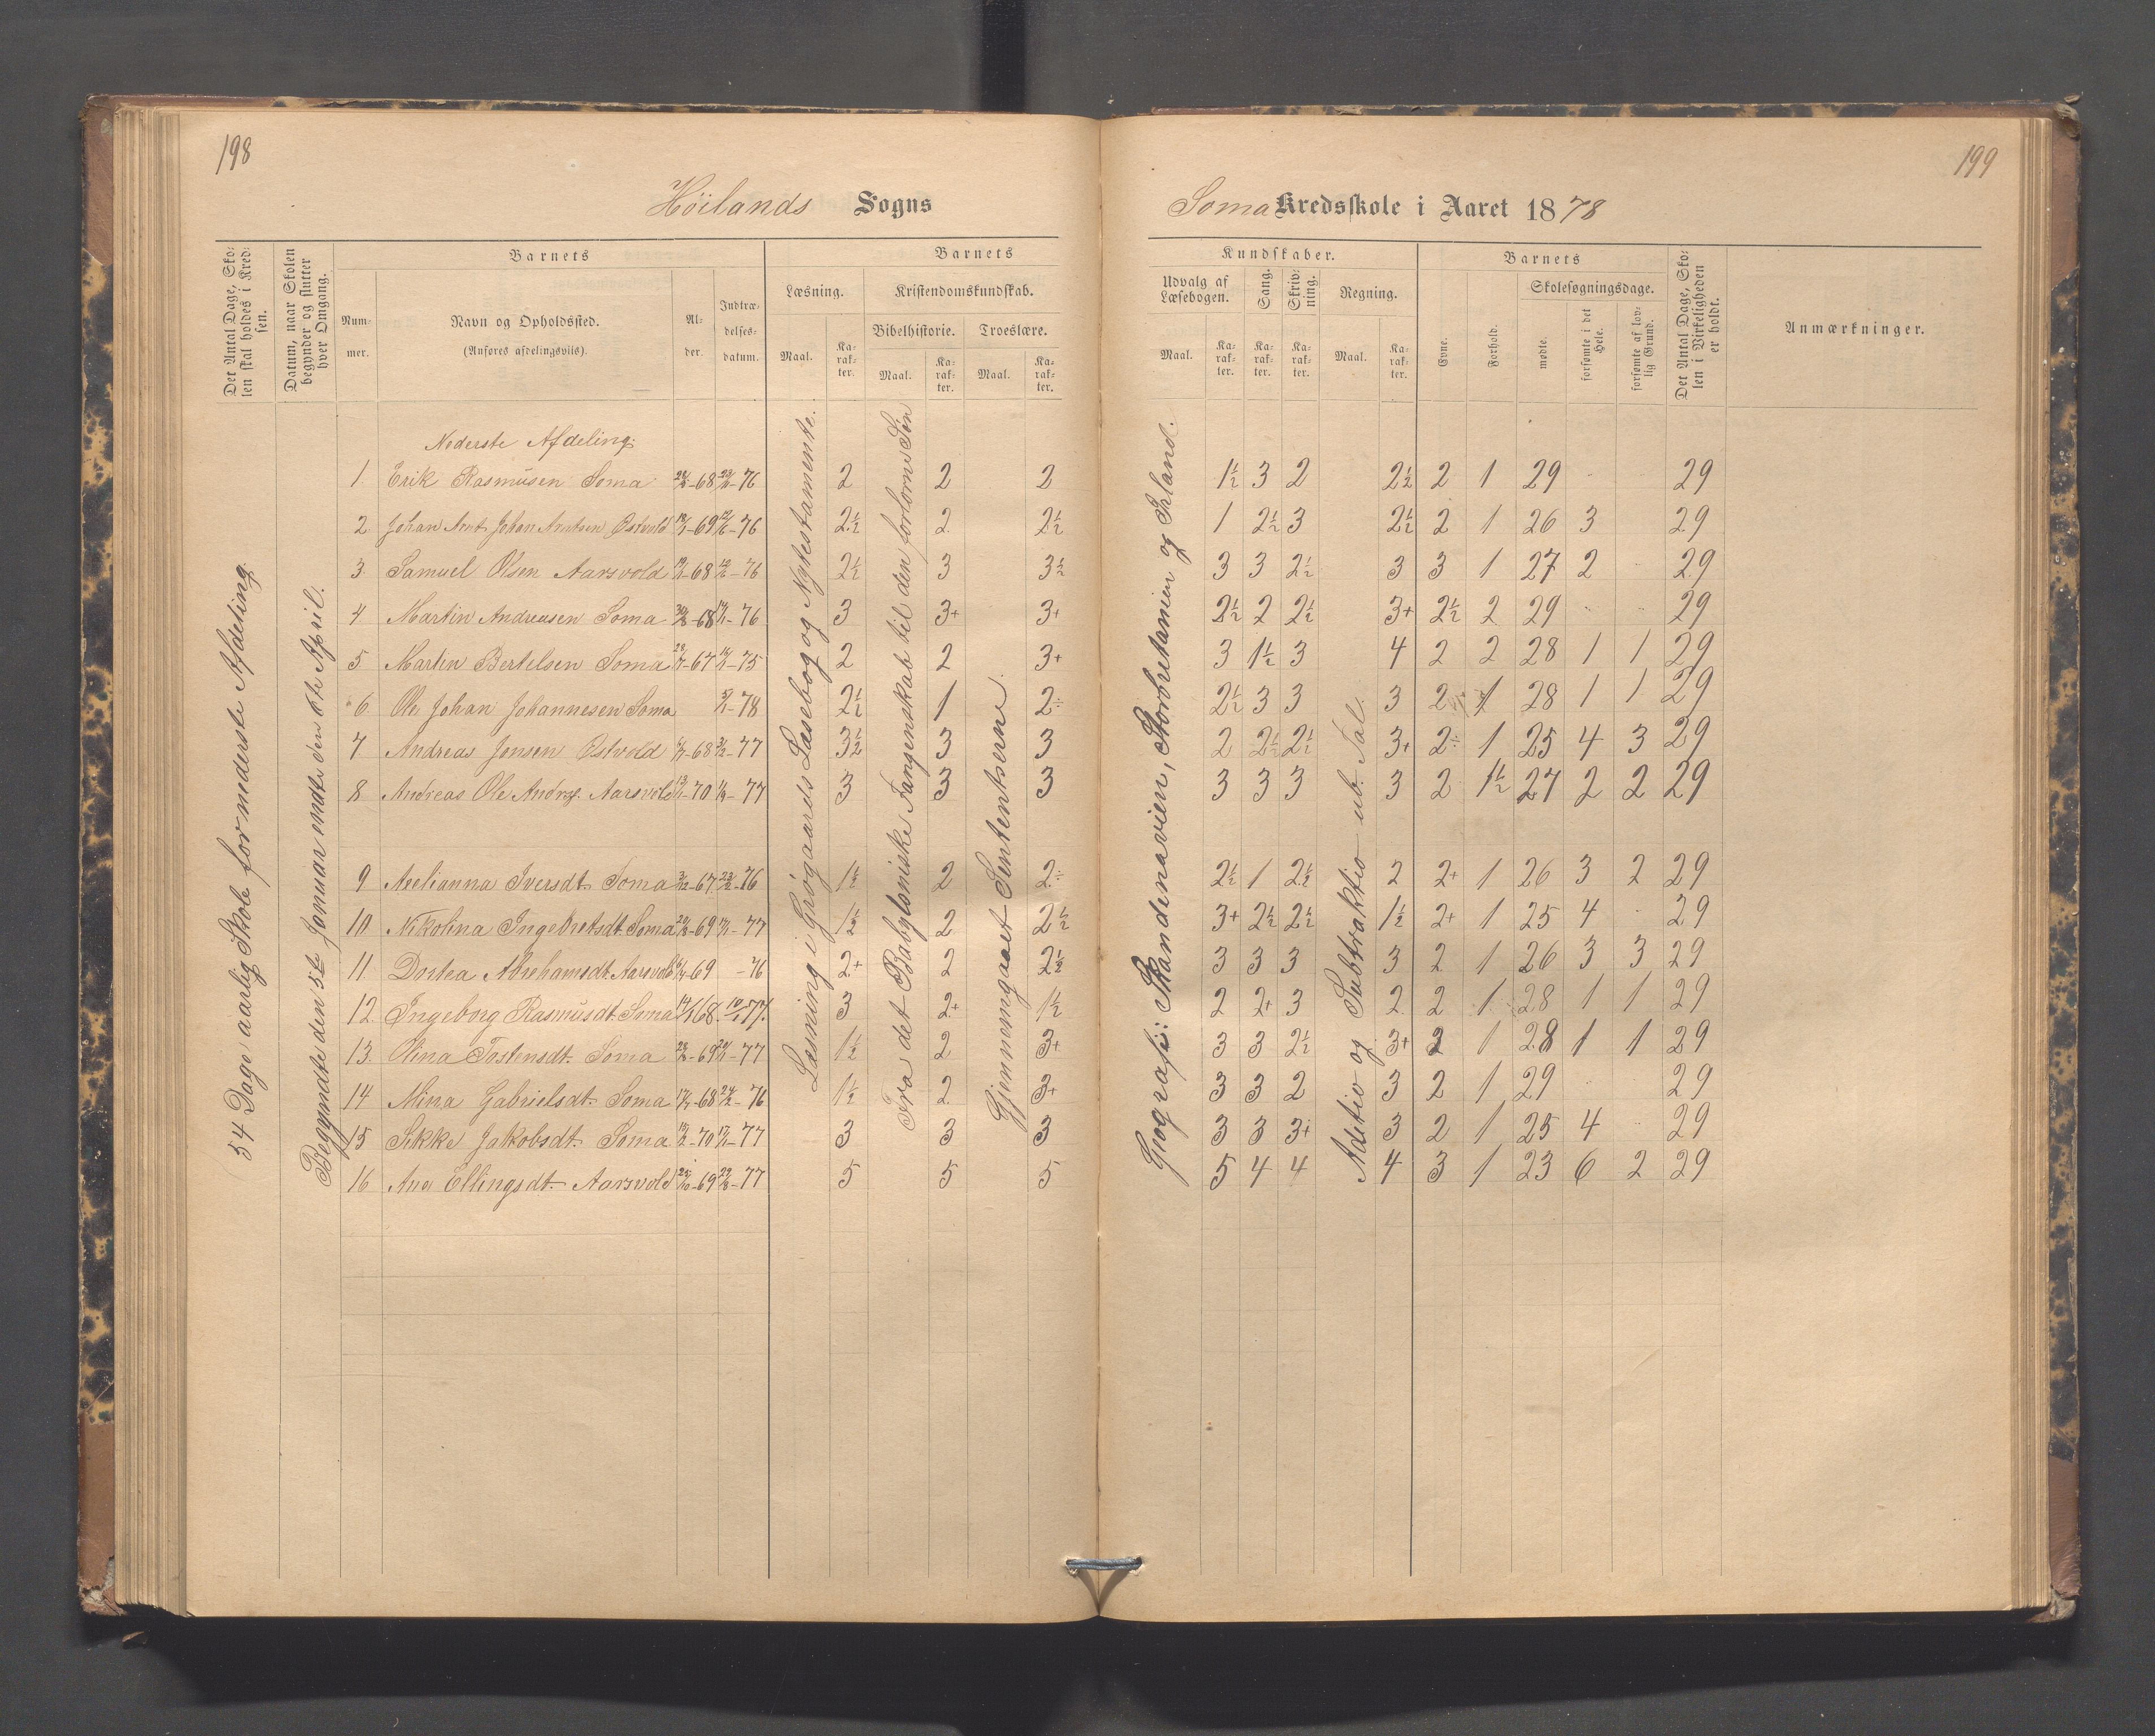 198
199
Höilands Sogns
Soma Kredsskole i Aaret 1878
Det Antal Dage, Skolen skal holdes i Kredsen.
Datum, naar Skolen begynder og slutter hver Omgang.
Barnets
Nummer.
Navn og Opholdssted.
(Anføres afdelingsvils).
Alder.
Indtrædelses-datum.
Barnets
Læsning.
Maal.
Karakter.
Kristendomskundskab.
Bibelhistorie.
Maal.
Karakter.
Troeslære.
Maal.
Karakter.
Kundskaber.
Udvalg af Læsebogen.
Maal.
Karakter.
Sang.
Karakter.
Skrivning.
Karakter.
Regning.
Maal.
Karakter.
Barnets
Evne.
Forhold.
Skolesøgningsdage.
mødte.
forsømte i det Hele.
forsømte af lovlig Grund.
Det Antal Dage, Skolen i Virkeligheden er holdt.
Anmærkninger.
54 Dage aarlig Skole for nederste Afdeling.
Begyndte den 3te Januar endte den 6te April.
Læsning i Grøgaards Læsebog og Nytestamente.
Fra det Babyloniske Fangenskab til den forlorne Søn
Gjennemgaaet Sententserne.
Geografi: Skandenavien, Storbretanien og Irland.
Aditio og Subtraktio ub. Tal.
Nederste Afdeling.
1 Erik Rasmusen Soma -68 -76 2 2 2 1½ 3 2 2½ 2 1 29 29
2 Johan Arnt Johan Arntsen Østvold -69 -76 2½ 2 2½ 1 2½ 3 2½ 2 1 26 3 29
3 Samuel Olsen Aarsvold -68 -76 2½ 3 3½ 3 3 2½ 3 3 1 27 2 29
4 Martin Andreasen Soma -68 -76 3 3+ 3+ 2½ 2 2½ 3+ 2½ 2 29 29
5 Martin Bertelsen Soma -67 -75 2 2 3+ 3 1½ 3 4 2 2 28 1 1 29
6 Ole Johan Johannesen Soma -78 2½ 1 2÷ 2½ 3 3 3 2 1 28 1 1 29
7 Andreas Jensen Østvold -68 -77 3½ 3 3 2 2½ 2½ 3+ 2÷ 1 25 4 3 29
8 Andreas Ole Andrs. Aarsvold -70 -77 3 3 3 3 3 3 3 2 1½ 27 2 2 29
9 Aelianna Iversdt. Soma -67 -76 1½ 2 2÷ 2½ 1 2½ 2 2+ 1 26 3 2 29
10 Nikolina Ingebretsdt. Soma -69 -77 1½ 2 2½ 3+ 2½ 2½ 1½ 2+ 1 25 4 29
11 Dortea Abrehamsdt. Aarsvold -69 -76 2+ 2 2½ 3 3 3 3 2 1 26 3 3 29
12 Ingeborg Rasmusdt. Soma 68 77 3 2+ 1½ 2 2+ 3 2 2 1 28 1 1 29
13 Olina Tostensdt. Soma -69 -77 1½ 2 3+ 3 3 2½ 3+ 2 1 28 1 1 29
14 Mina Gabrielsdt. Soma -68 -76 1½ 2 3+ 3 3 2 3 2 1 29 29
15 Sikke Jakobsdt. Soma -70 -77 3 3 3 3 3 3+ 3 2 1 25 4 29
16 Ane Ellingsdt. Aarsvold -69 -77 5 5 5 5 4 4 4 3 1 23 6 2 29